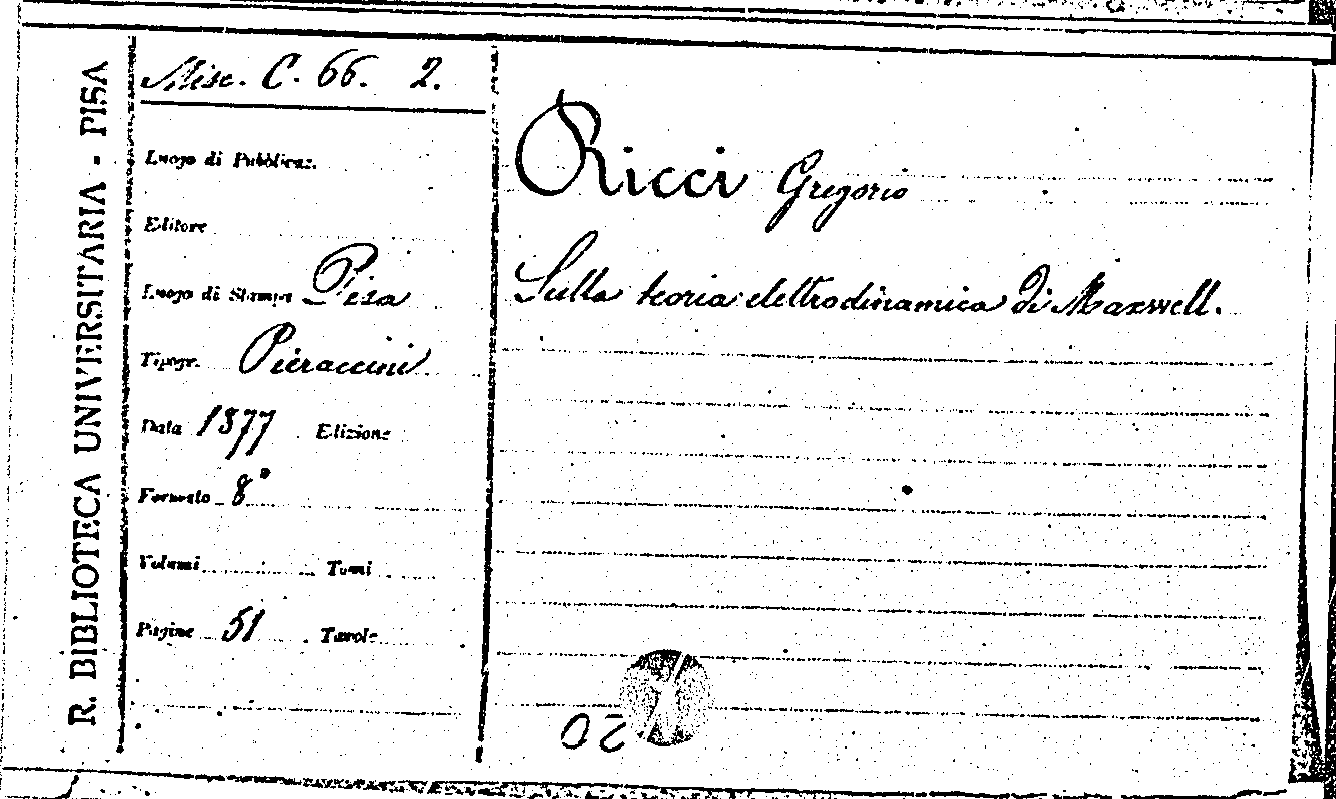 R. BIBLIOTECA UNIVERSITARIA - PISA
Misc. C. 66. 2.
Luogo di Pubblicaz.
Editore
Luogo di Stampa Pisa
Tipogr. Pieraccini
Data 1877 Edizione
Formato 8°
Volumi Tomi
Pagine 51 Tavole
Ricci Gregorio
Sulla teoria elettrodinamica di Maxwell.
20